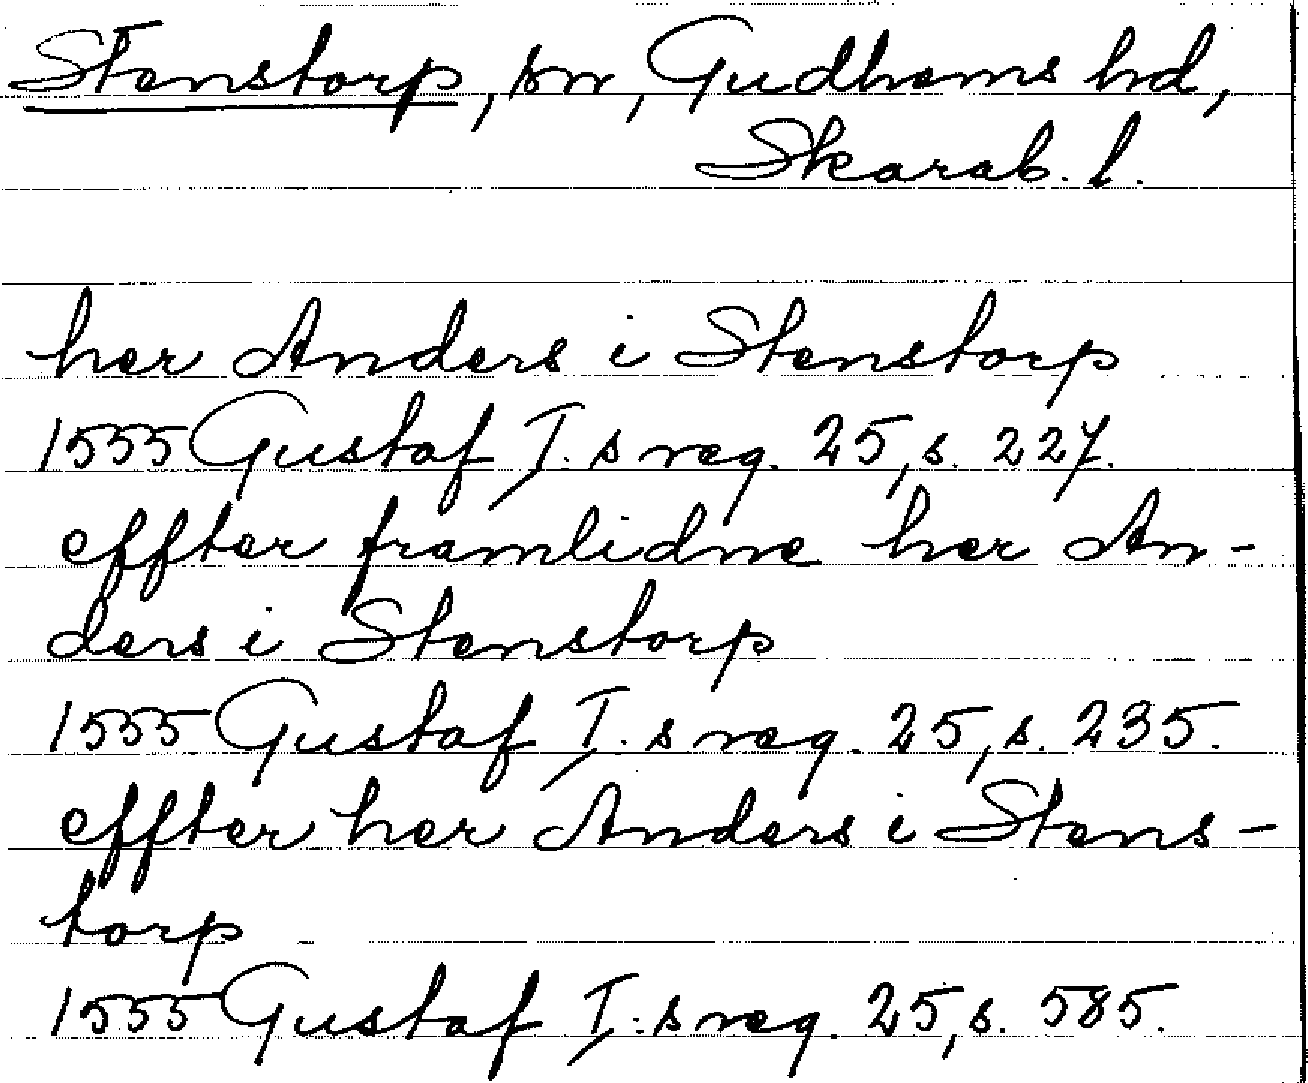 Stenstorp, sn, Gudhems hd,
Skarab. l.
her Anders i Stenstorp
1555 Gustaf I:s reg. 25, s. 227.
effter framlidne her An-
ders i Stenstorp
1555 Gustaf I:s reg. 25, s. 235.
effter her Anders i Stens-
torp
1555 Gustaf I:s reg. 25, s. 585.